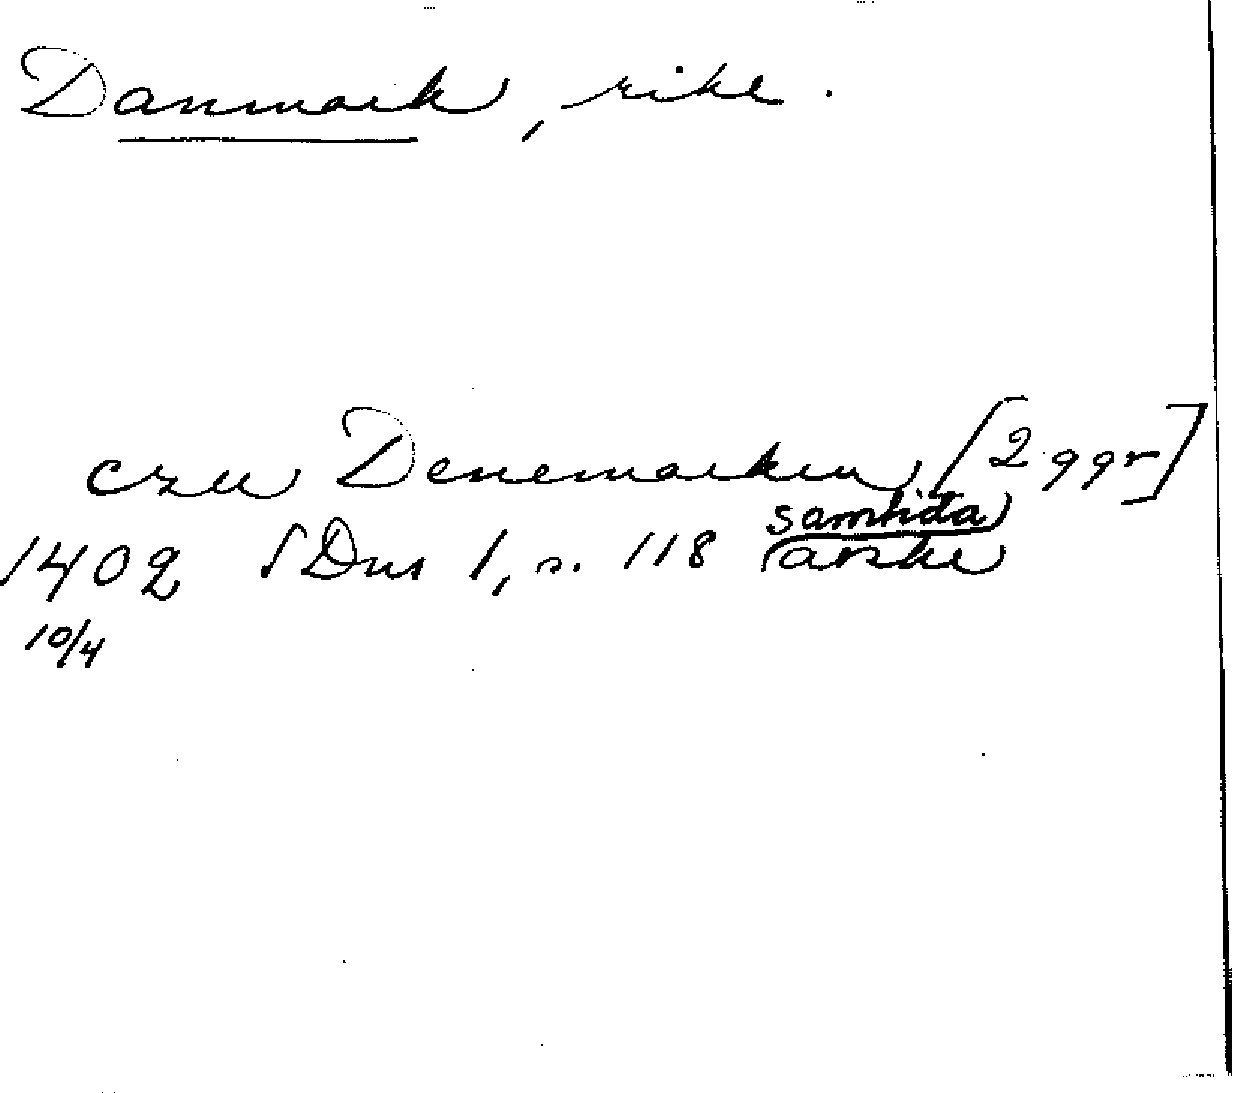 Danmark, rike.
czu Denemarken [2 ggr]
1402 SDns 1, s. 118 (samtida avskr)
10/4